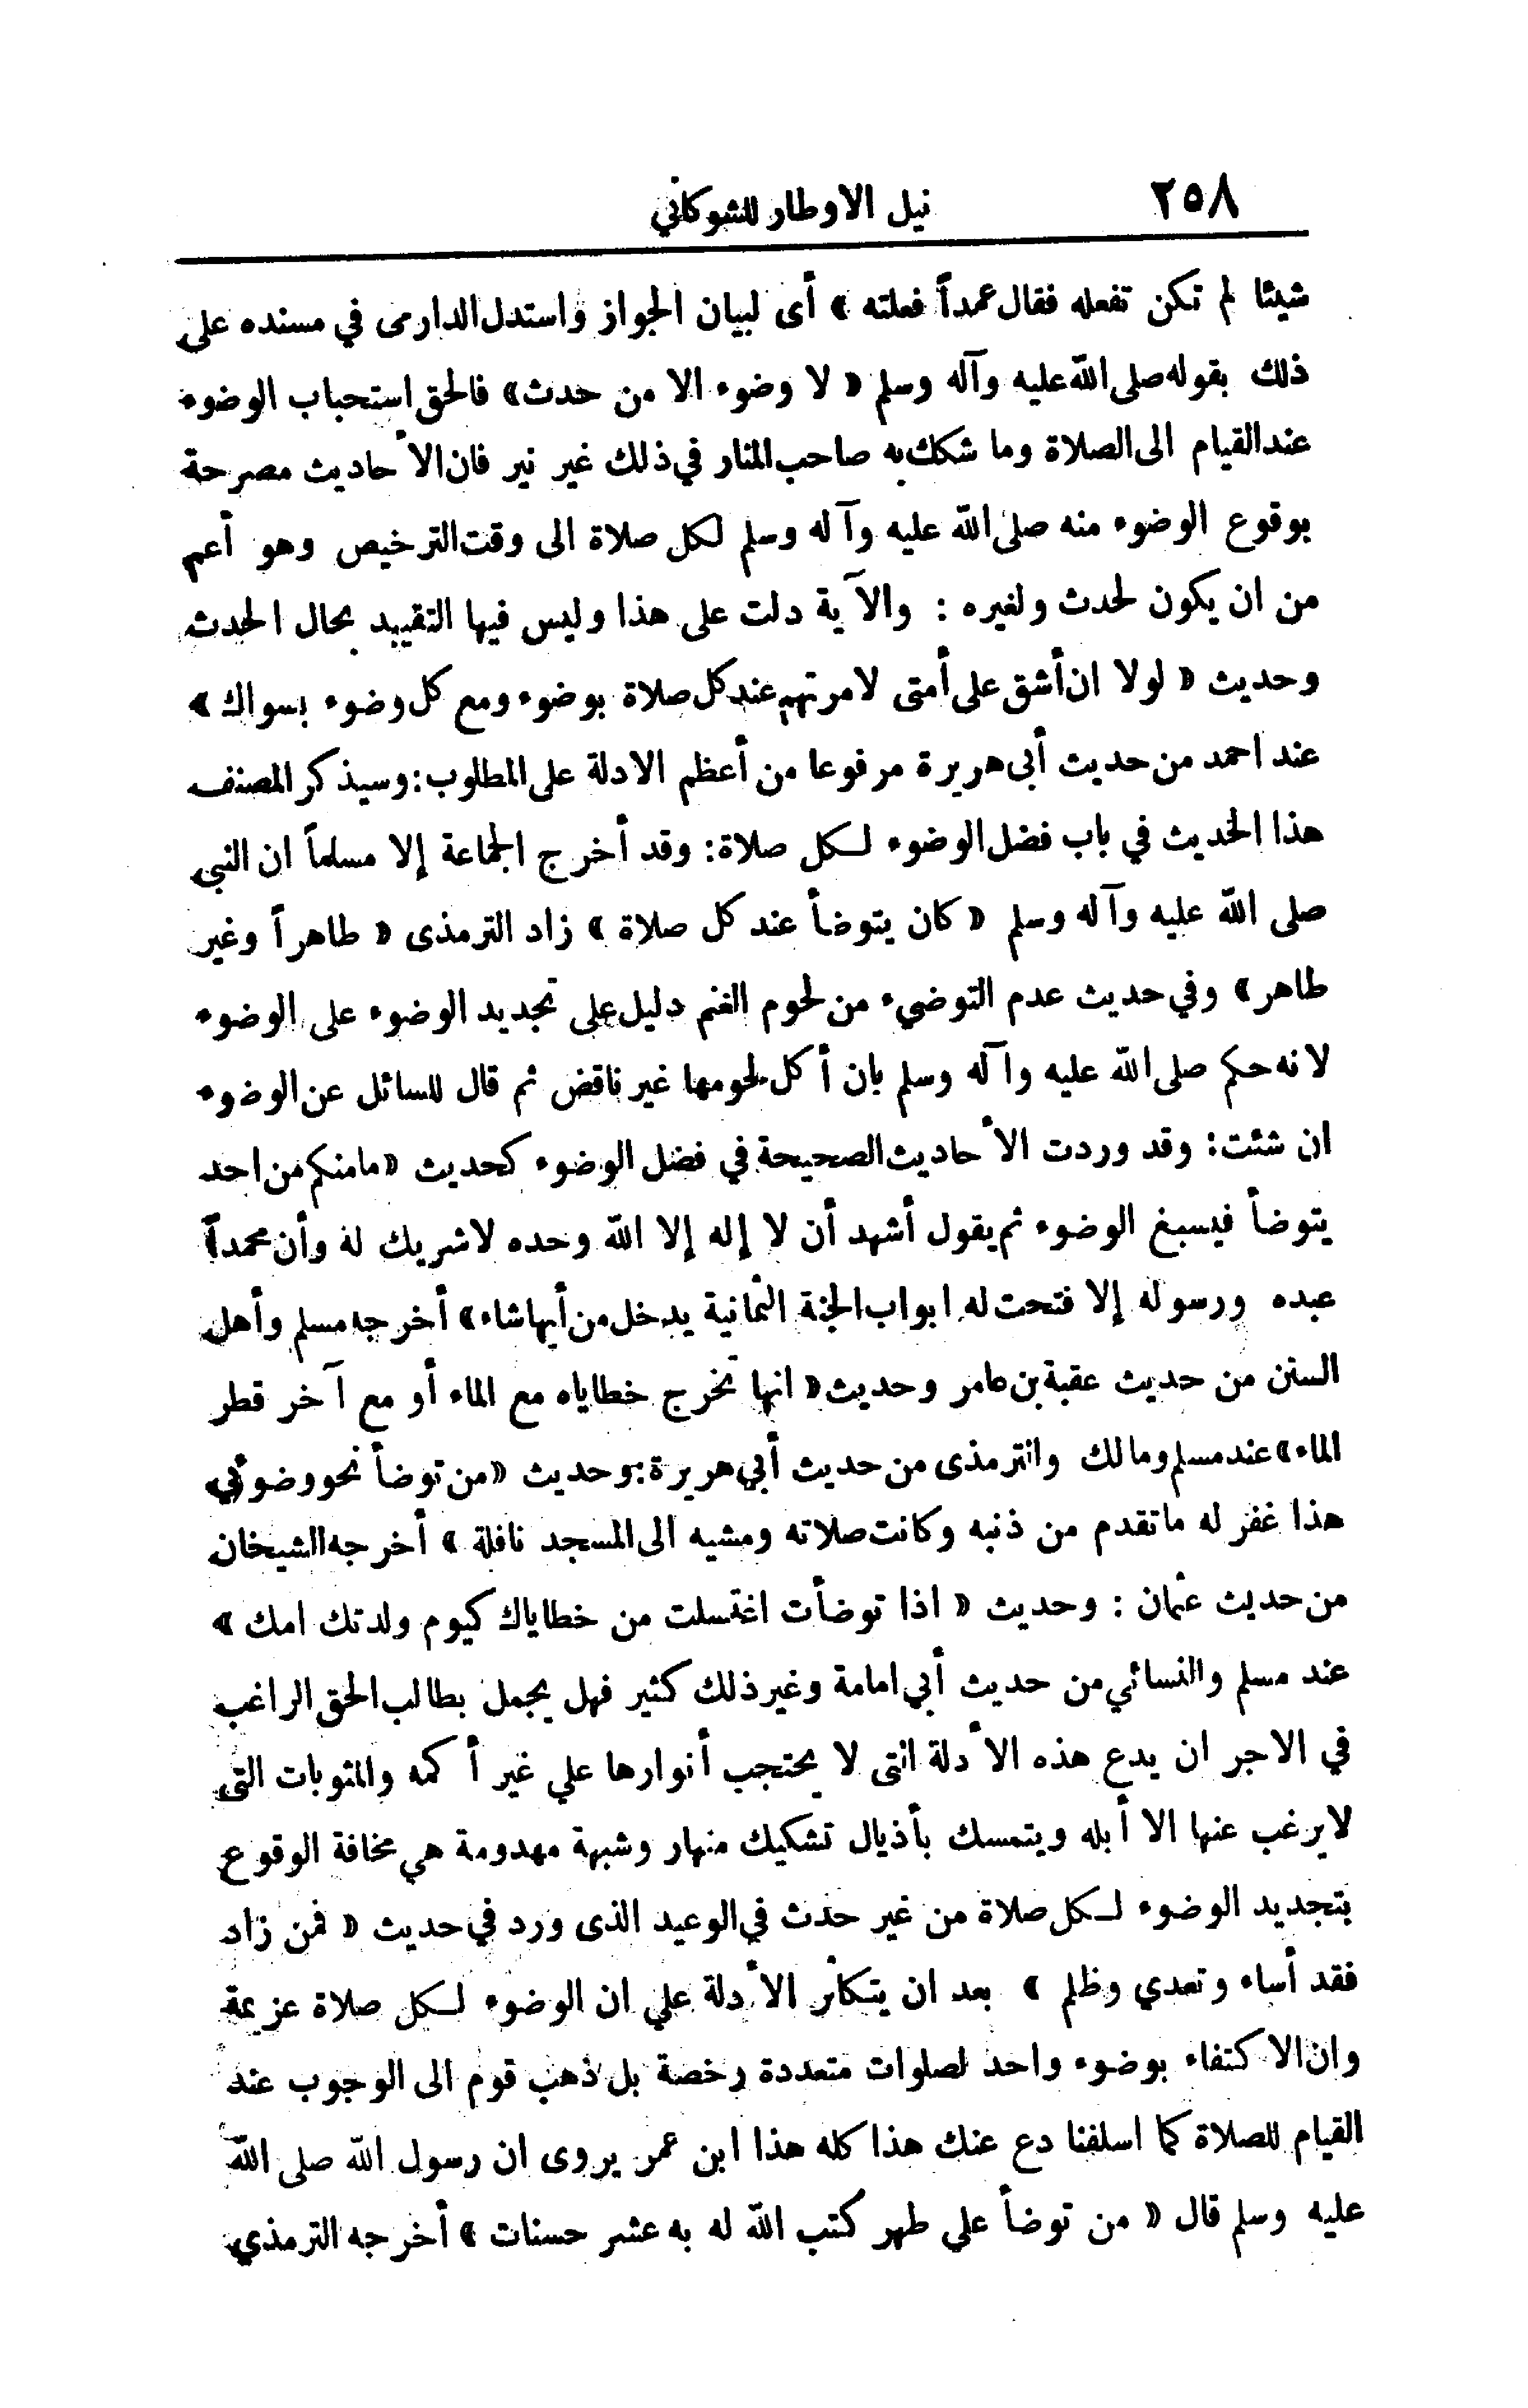 ٢٥٨ نيل الاوطار للشوكاني
شيئا لم تكن تفعله فقال عمداً فعلته » أى لبيان الجواز واستدل الدارمى في مسنده على
ذلك بقوله صلى الله عليه وآله وسلم « لا وضوء الا من حدث» فالحق استحباب الوضوء
عند القيام الى الصلاة وما شكك به صاحب المنار في ذلك غير نير فان الأحاديث مصرحة
بوقوع الوضوء منه صلى الله عليه وآله وسلم لكل صلاة الى وقت الترخيص وهو أعم
من ان يكون لحدث ولغيره : والآية دلت على هذا وليس فيها التقييد بحال الحدث
وحديث « لولا ان أشق على أمتى لامرتهم عند كل صلاة بوضوء ومع كل وضوء بسواك »
عند احمد من حديث أبى هريرة مرفوعا من أعظم الادلة على المطلوب: وسيذكر المصنف
هذا الحديث في باب فضل الوضوء لكل صلاة: وقد أخرج الجماعة إلا مسلماً ان النبي
صلى الله عليه وآله وسلم « كان يتوضأ عند كل صلاة » زاد الترمذى « طاهراً وغير
طاهر» وفي حديث عدم التوضيء من لحوم الغنم دليل على تجديد الوضوء على الوضوء
لانه حكم صلى الله عليه وآله وسلم بان أكل لحومها غير ناقض ثم قال للسائل عن الوضوء
ان شئت: وقد وردت الأحاديث الصحيحة في فضل الوضوء كحديث «مامنكم من احد
يتوضأ فيسبغ الوضوء ثم يقول أشهد أن لا إله إلا الله وحده لاشريك له وأن محمداً
عبده ورسوله إلا فتحت له ابواب الجنة الثمانية يدخل من أيها شاء» أخرجه مسلم وأهل
السنن من حديث عقبة بن عامر وحديث « انها تخرج خطاياه مع الماء أو مع آخر قطر
الماء» عند مسلم ومالك والترمذى من حديث أبي هريرة: وحديث «من توضأ نحو وضوئي
هذا غفر له ماتقدم من ذنبه وكانت صلاته ومشيه الى المسجد نافلة » أخرجه الشيخان
من حديث عثمان : وحديث « اذا توضأت اغتسلت من خطاياك كيوم ولدتك امك »
عند مسلم والنسائي من حديث أبي امامة وغير ذلك كثير فهل يجمل بطالب الحق الراغب
في الاجر ان يدع هذه الأدلة التى لا يحتجب أنوارها علي غير أكمه والمثوبات التي
لايرغب عنها الا أبله ويتمسك بأذيال تشكيك منهار وشبهة مهدومة هي مخافة الوقوع
بتجديد الوضوء لكل صلاة من غير حدث في الوعيد الذى ورد في حديث « فمن زاد
فقد أساء وتعدي وظلم » بعد ان يتكاثر الأدلة علي ان الوضوء لكل صلاة عزيمة
وان الاكتفاء بوضوء واحد لصلوات متعددة رخصة بل ذهب قوم الى الوجوب عند
القيام للصلاة كما اسلفنا دع عنك هذا كله هذا ابن عمر يروى ان رسول الله صلى الله
عليه وسلم قال « من توضأ علي طهر كتب الله له به عشر حسنات » أخرجه الترمذي